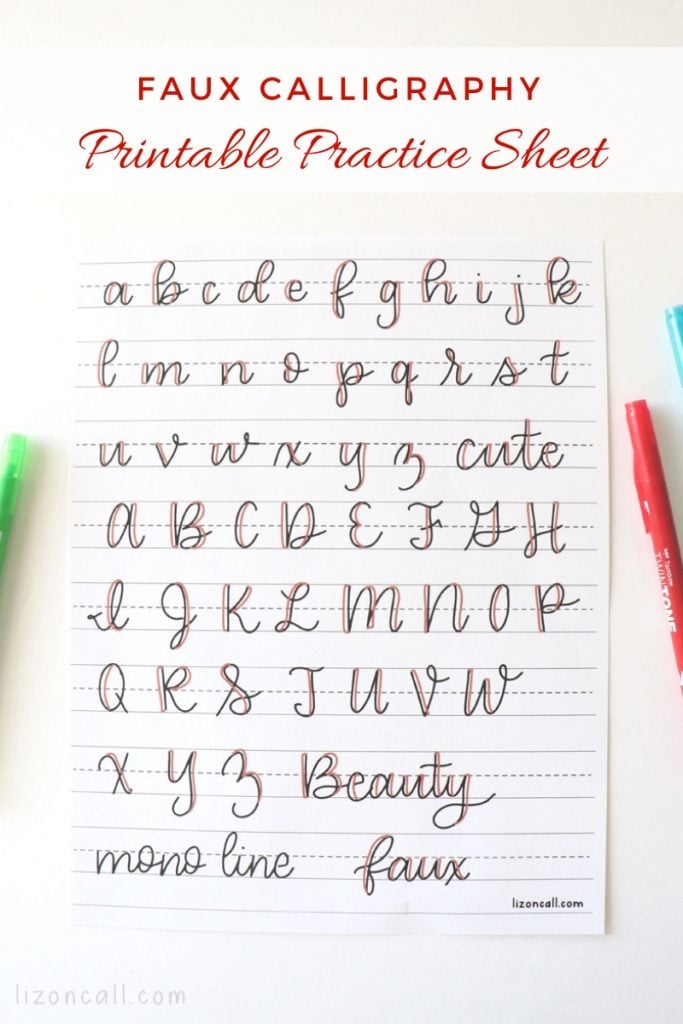 FAUX CALLIGRAPHY
Printable Practice Sheet
a b c d e f g h i j k
l m n o p q r s t
u v w x y z cute
A B C D E F G H
I J K L M N O P
Q R S T U V W
X Y Z Beauty
mono line faux
lizoncall.com
TWINTONE
lizoncall.com